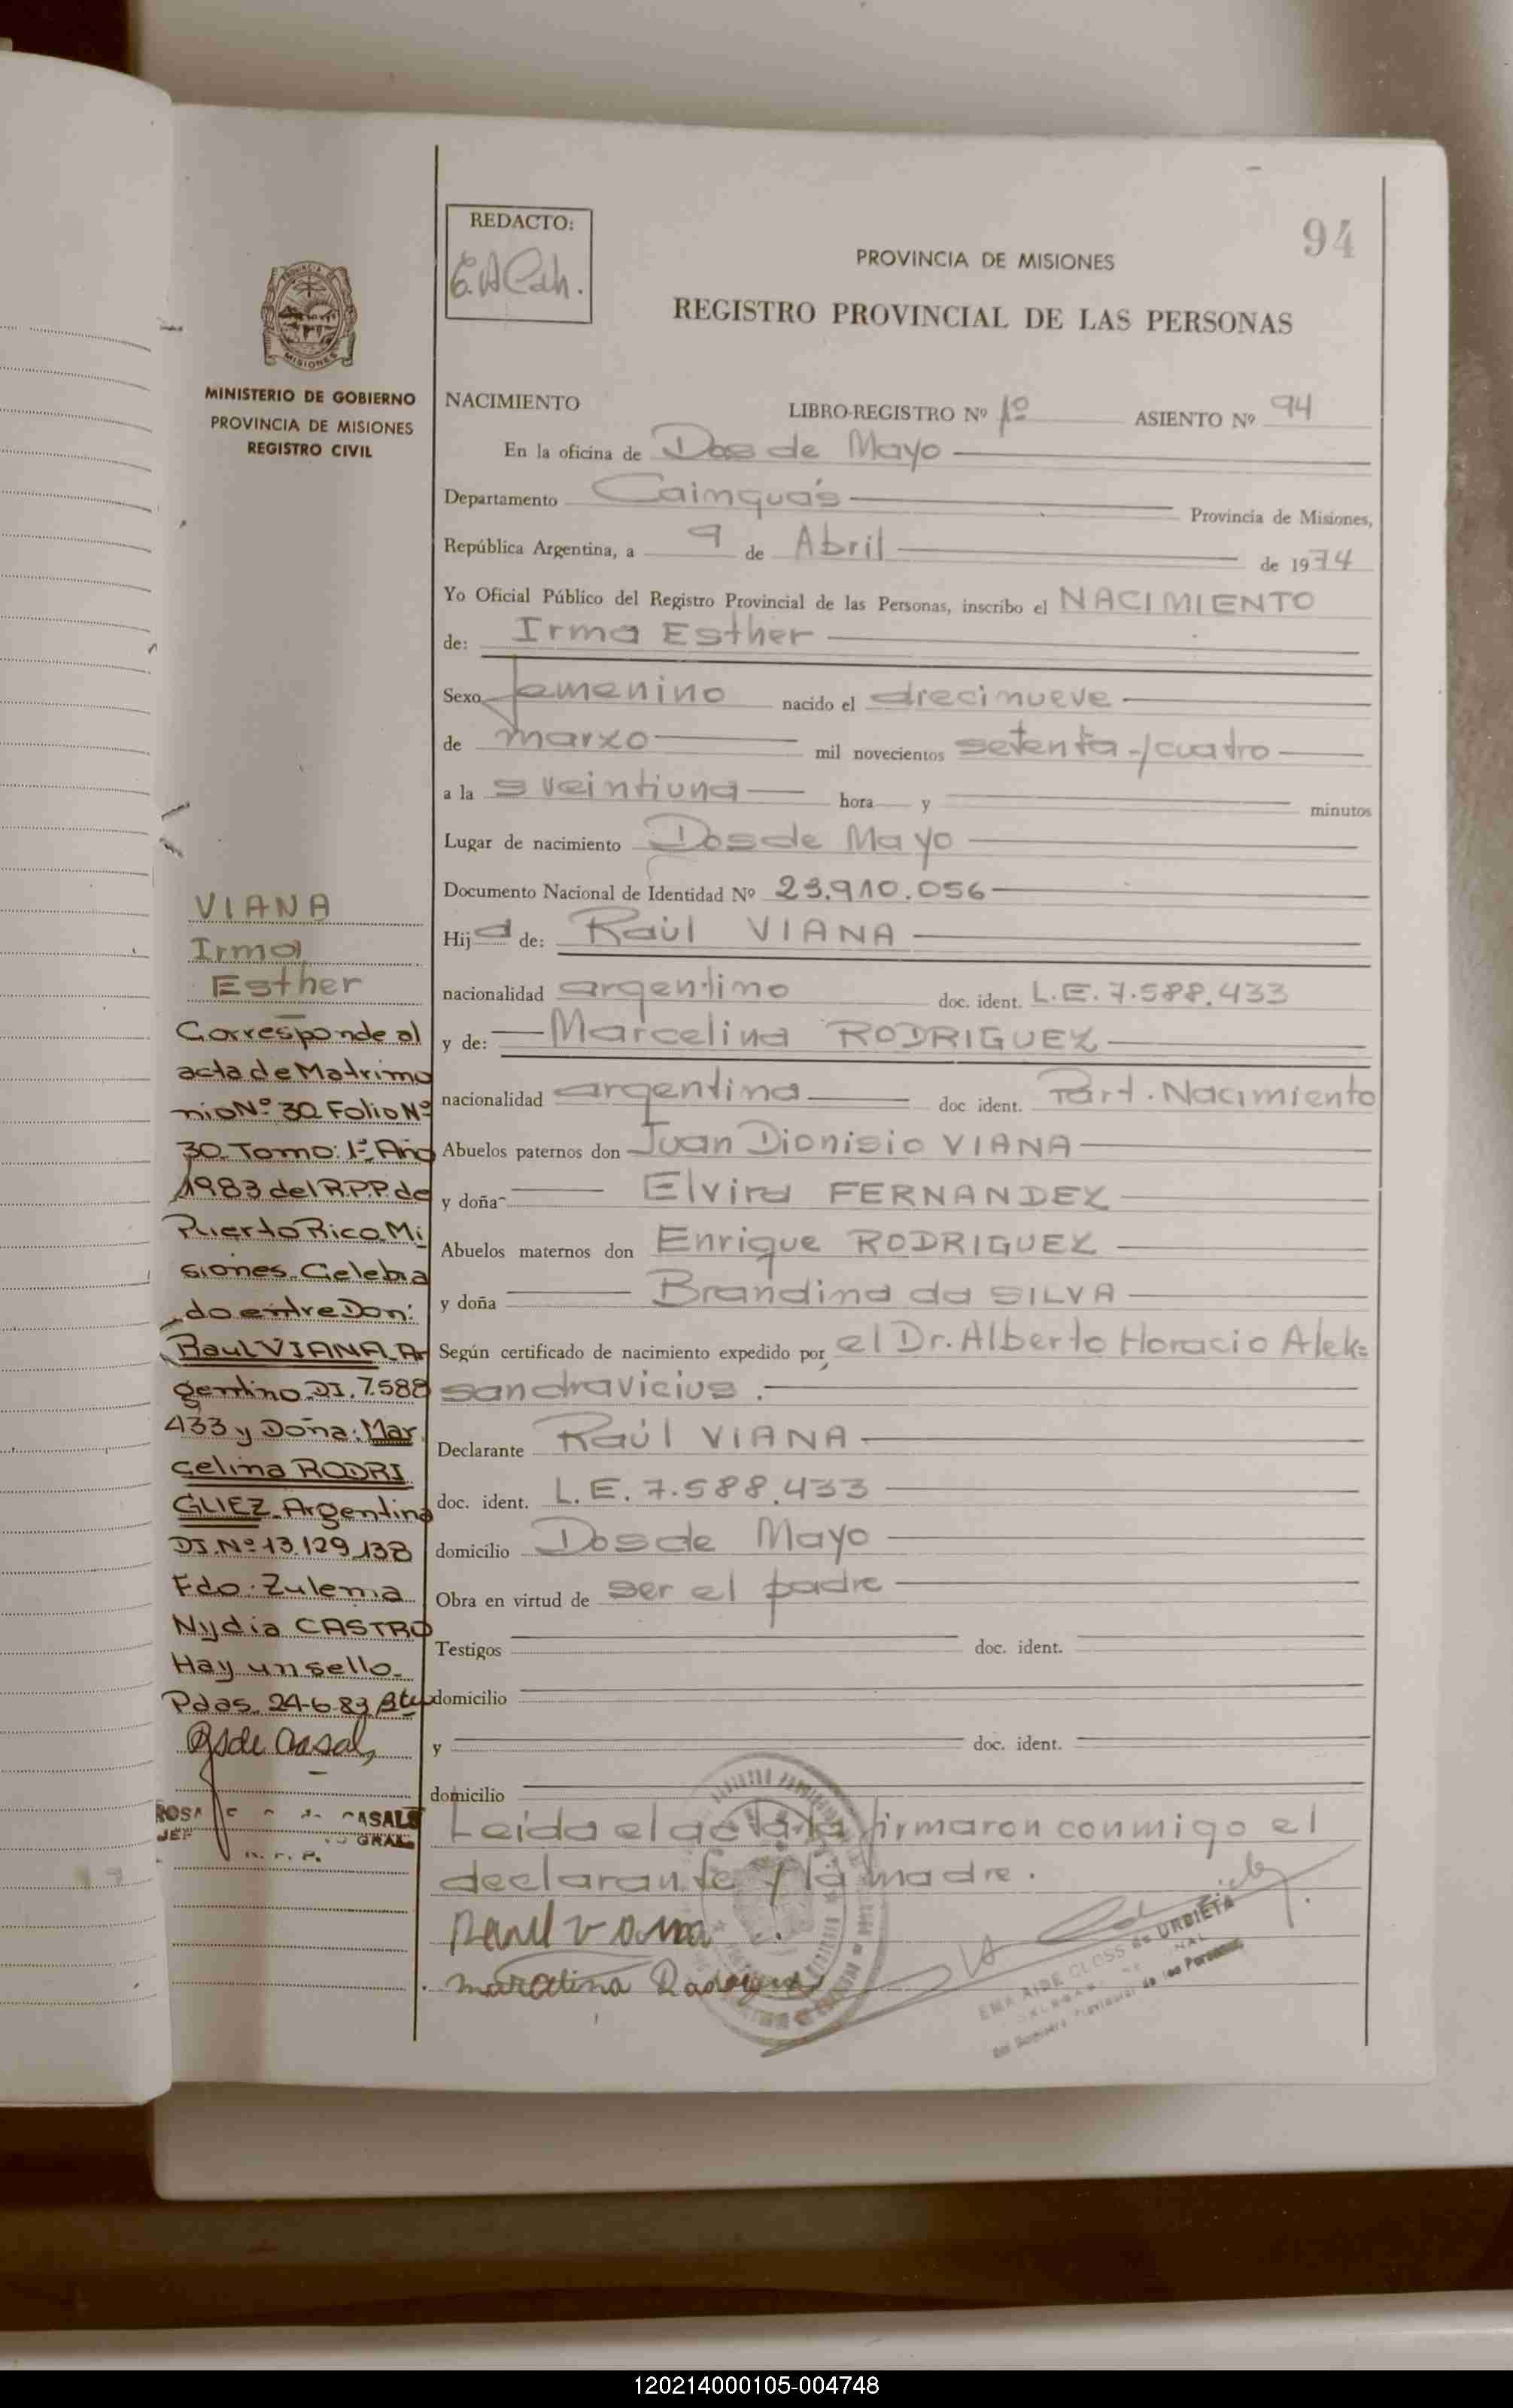 REDACTO:
94
PROVINCIA DE MISIONES
REGISTRO PROVINCIAL DE LAS PERSONAS
MISIONES
MINISTERIO DE GOBIERNO
PROVINCIA DE MISIONES
REGISTRO CIVIL
NACIMIENTO LIBRO-REGISTRO Nº 1º ASIENTO Nº 94
En la oficina de Dos de Mayo
Departamento Cainguás Provincia de Misiones,
República Argentina, a 9 de Abril de 1974
Yo Oficial Público del Registro Provincial de las Personas, inscribo el NACIMIENTO
de: Irma Esther
Sexo femenino nacido el diecinueve
de marzo mil novecientos setenta y cuatro
a la s veintiuna hora y minutos
Lugar de nacimiento Dos de Mayo
Documento Nacional de Identidad Nº 23.910.056
Hija de: Raúl VIANA
nacionalidad argentino doc. ident. L.E. 7.588.433
y de: Marcelina RODRIGUEZ
nacionalidad argentina doc ident. Part. Nacimiento
Abuelos paternos don Juan Dionisio VIANA
y doña Elvira FERNANDEZ
Abuelos maternos don Enrique RODRIGUEZ
y doña Brandina da SILVA
Según certificado de nacimiento expedido por el Dr. Alberto Horacio Alek=
sandravicius.
Declarante Raúl VIANA
doc. ident. L.E. 7.588.433
domicilio Dos de Mayo
Obra en virtud de ser el padre
Testigos doc. ident.
domicilio
y doc. ident.
domicilio
Leida el acta la firmaron conmigo el
declarante y la madre.
Raul Viana
Marcelina Rodriguez
EMA AIDE CLOSS de URBIETA
del Registro Provincial de las Personas
VIANA
Irma
Esther
Corresponde al
acta de Matrimo
nio Nº 30 Folio Nº
30 Tomo: 1º Año
1983 del R.P.P. de
Puerto Rico Mi
siones. Celebra
do entre Don:
Raul VIANA Ar
gentino DI. 7.588
433 y Doña: Mar
celina RODRI
GUEZ Argentina
DI. Nº 13.129.138
Fdo: Zulema
Nydia CASTRO
Hay un sello.
Pdas. 24-6-83
ROSA CASALS
JEF GRAL
R. P. P.
120214000105-004748